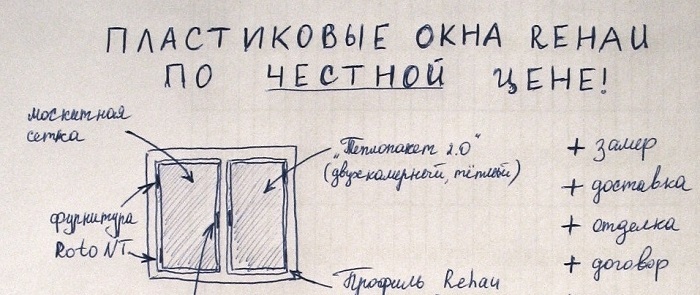 ПЛАСТИКОВЫЕ ОКНА REHAU
ПО ЧЕСТНОЙ ЦЕНЕ!
москитная
сетка
"Теплопакет 2.0"
(двухкамерный, тёплый)
фурнитура
Roto NT
Профиль Rehau
+ замер
+ доставка
+ отделка
+ договор